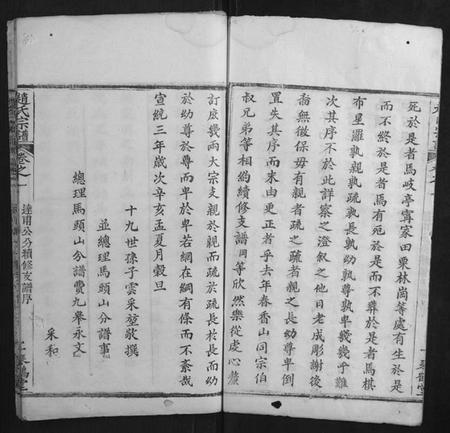 死於是者馬岐亭寗家田栗林崗等處有生於是
而不終於是者馬有死於是而不葬於是者馬棋
布星羅孰親孰疏孰長孰幼孰尊孰卑幾幾乎難
次其序不於此詳察之澄叙之他日老成彫謝後
裔無徵保毋有親者之疏疏者親之長幼尊卑倒
置失其序而末由更正者乎去年春香山同宗伯
叔兄弟等相約續修支譜同等欣然樂從虔心釐
訂庶幾兩大宗支親於親而疏於疏長於長而幼
於幼尊於尊而卑於卑若網在綱有條而不紊哉
宣統三年歲次辛亥孟夏月穀旦
十九世孫子雲采堃敬撰
並總理馬頭山分譜事
總理馬頭山分譜費九皋永文
采和
趙氏宗譜
卷之一
達甫公分續修支譜序